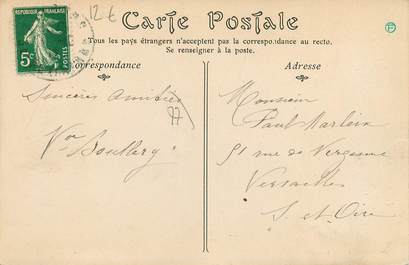 12 €
Carte Postale
Tous les pays étrangers n'acceptent pas la correspondance au recto.
Se renseigner à la poste.
Correspondance
Adresse
REPUBLIQUE FRANÇAISE
5c
POSTES
Sincères amitiés
77
Vve Boullery
Monsieur
Paul
51 rue de Vergennes
Versailles
S. et Oise